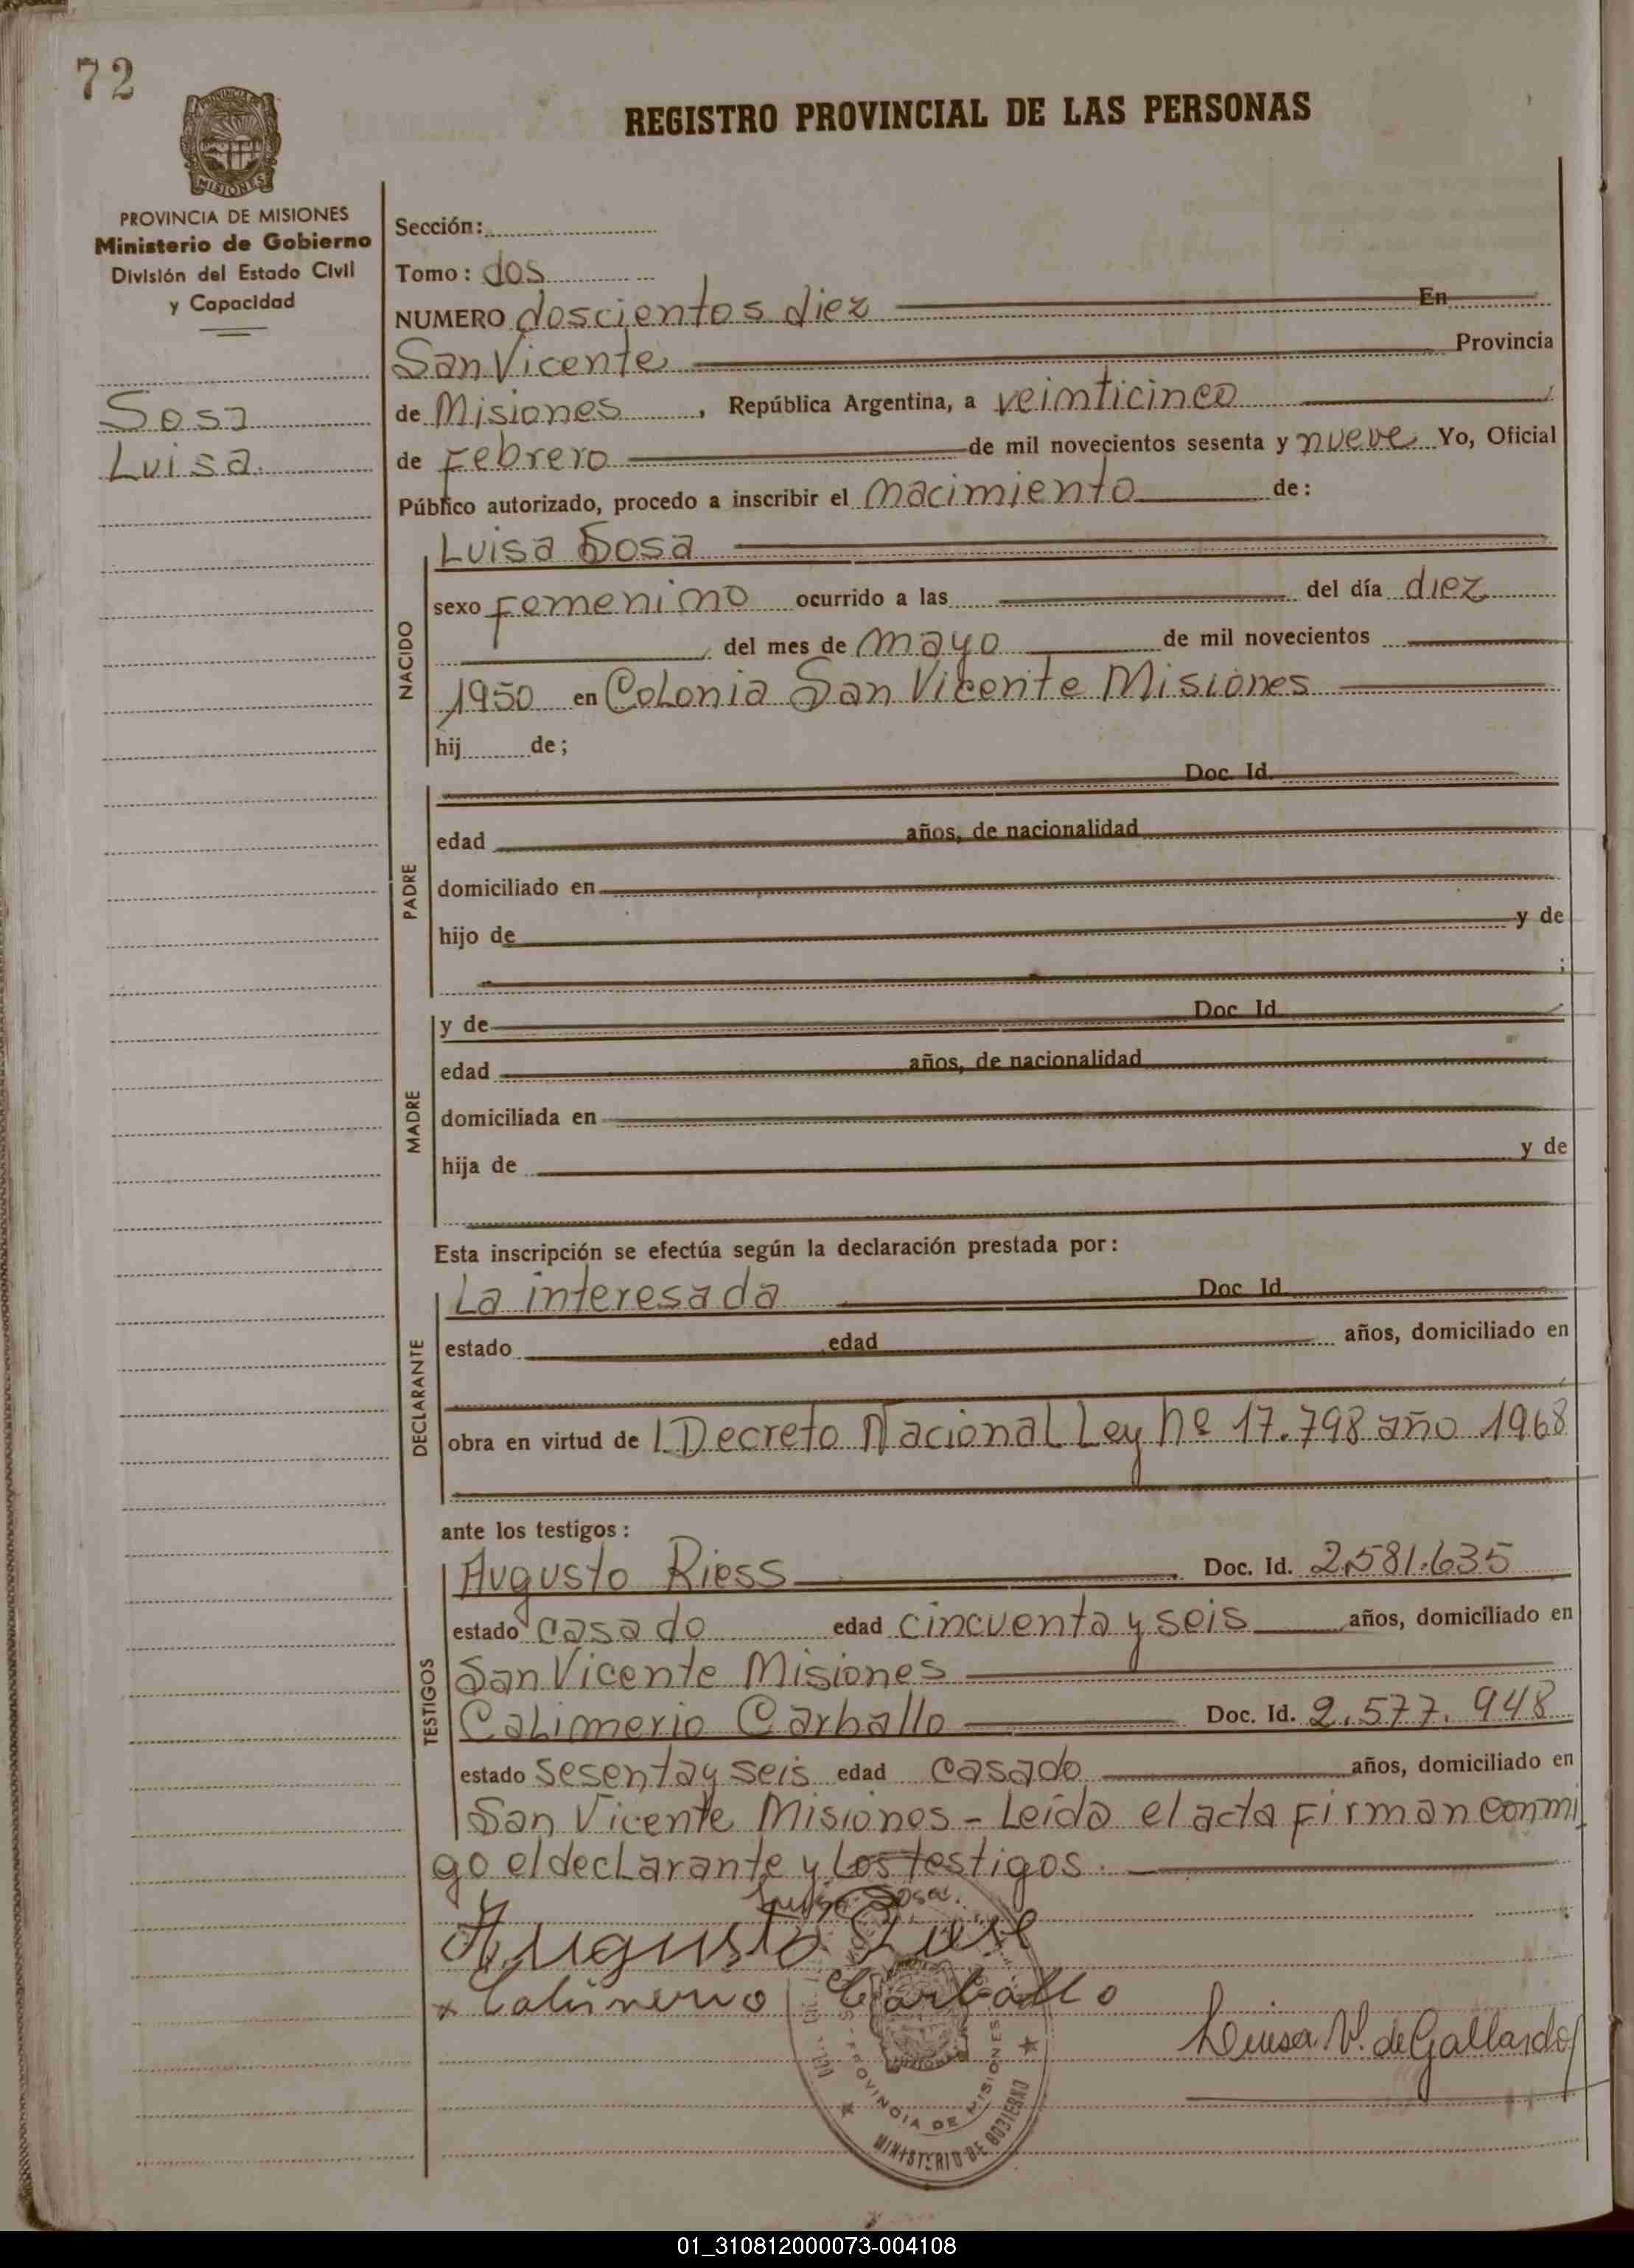 72
REGISTRO PROVINCIAL DE LAS PERSONAS
PROVINCIA DE MISIONES
Ministerio de Gobierno
División del Estado Civil
y Capacidad
Sosa
Luisa
Sección:
Tomo: dos
NUMERO doscientos diez En
San Vicente Provincia
de Misiones, República Argentina, a veinticinco
de Febrero de mil novecientos sesenta y nueve Yo, Oficial
Público autorizado, procedo a inscribir el nacimiento de:
NACIDO
Luisa Sosa
sexo Femenino ocurrido a las del día diez
del mes de mayo de mil novecientos
1950 en Colonia San Vicente Misiones
hij de;
PADRE
Doc. Id.
edad años, de nacionalidad
domiciliado en
hijo de y de
;
MADRE
y de Doc. Id.
edad años, de nacionalidad
domiciliada en
hija de y de
Esta inscripción se efectúa según la declaración prestada por:
DECLARANTE
La interesada Doc. Id.
estado edad años, domiciliado en
obra en virtud de Decreto Nacional Ley Nº 17.798 año 1968
ante los testigos:
TESTIGOS
Augusto Riess Doc. Id. 2.581.635
estado casado edad cincuenta y seis años, domiciliado en
San Vicente Misiones
Calimerio Carballo Doc. Id. 2.577.948
estado sesenta y seis edad casado años, domiciliado en
San Vicente Misiones - Leída el acta Firman conmi
go el declarante y los testigos.
Luisa Sosa.
Augusto Riess
x Calimerio Carballo
Luisa V. de Gallardo
PROVINCIA DE MISIONES
MINISTERIO DE GOBIERNO
01_310812000073-004108